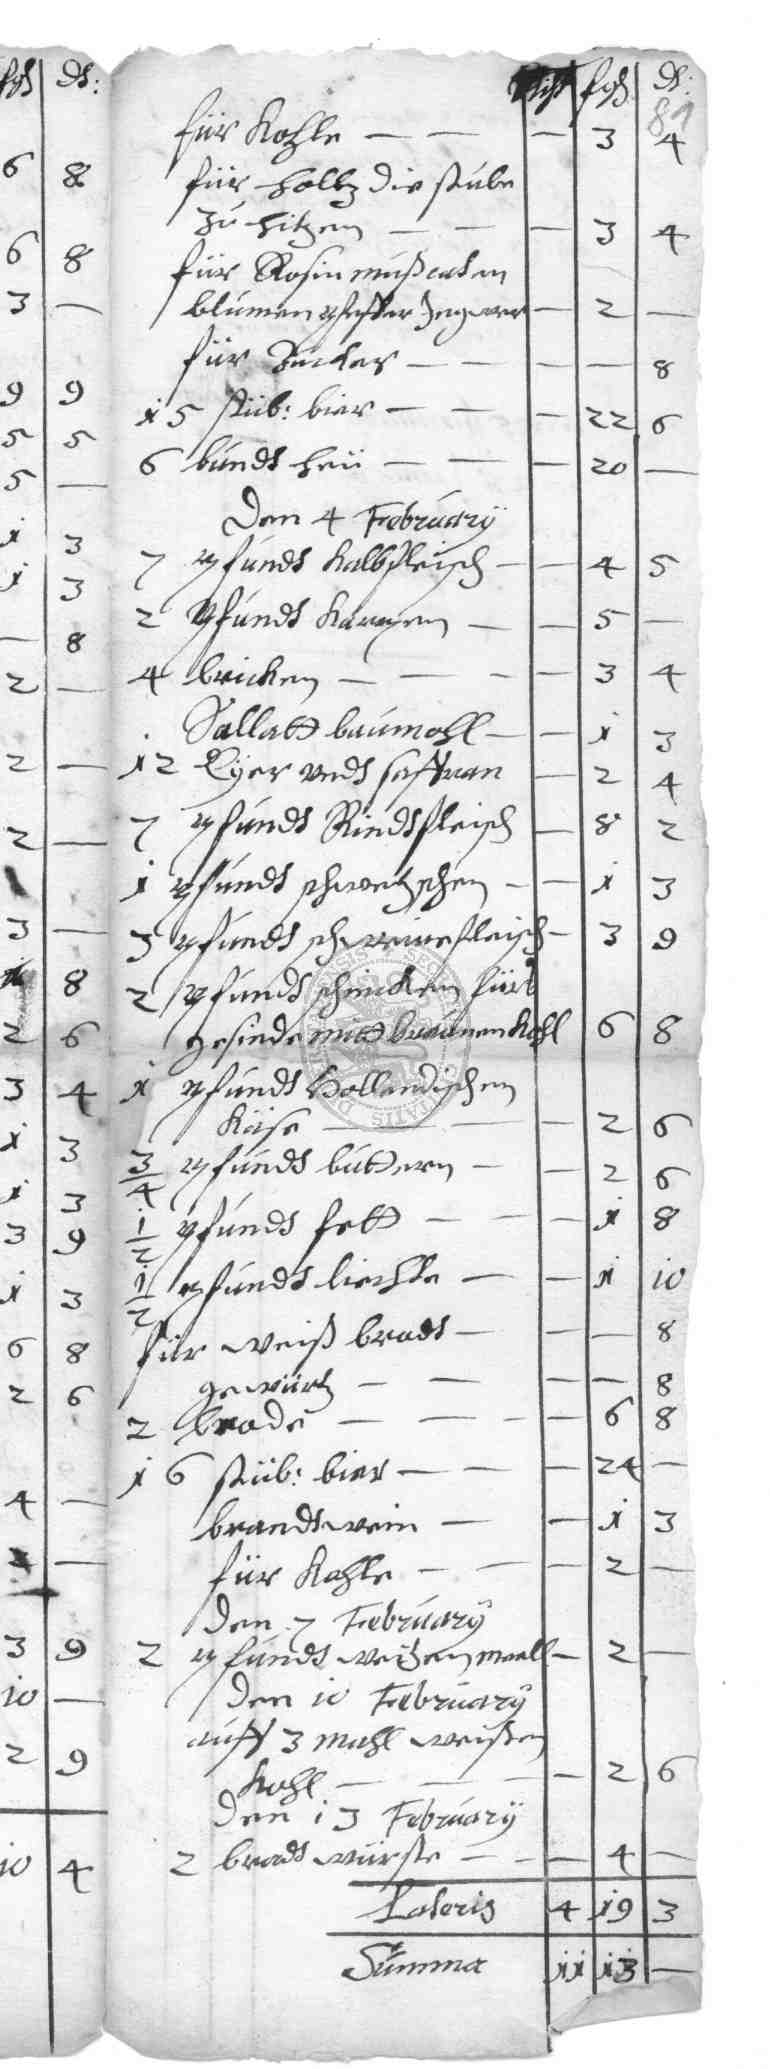 fgl dt:
6 8
6 8
3 —
9 9
5 5
5 —
i 3
i 3
— 8
2 —
2 —
2 —
3 —
8
2 6
3 4
i 3
i 3
3 9
i 3
6 8
2 6
4 —
—
3 9
10 —
2 9
10 4
fgl dt:
81
für Kohle — — — 3 4
für Holltz die stube
zu hitzen — — — 3 4
für Rosin mußcaten
blumen pfeffer Ingwer — 2 —
für Zucker — — — — 8
i5 stüb: bier — — — 22 6
6 bundt heü — — — 20 —
Den 4 Februarÿ
7 pfundt Kalbfleisch — — 4 5
2 pfundt Karpen — — 5 —
4 bricken — — — — 3 4
Sallatt baumohl — — i 3
i2 Eÿer vndt saffran — 2 4
7 pfundt Rindtfleisch — 8 2
i pfundt schwetzschen — — i 3
3 pfundt schweinefleisch — 3 9
2 pfundt schincken fürs
gesinde mitt braunen Kohl 6 8
i pfundt Hollandischen
Käise — — — 2 6
3/4 pfundt buttern — — 2 6
i/2 pfundt fett — — — i 8
i/2 pfundt liechte — — i io
für weiß brodt — — — 8
gewürtz — — — — 8
2 brode — — — — 6 8
i6 stüb: bier — — — 24 —
brandtwein — — i 3
für Kohle — — — 2 —
den 7 Februarÿ
2 pfundt weitzen meell — 2 —
den io Februarÿ
auff 3 mahl weißen
Kohl — — — 2 6
den i3 Februarÿ
2 bradt würste — — — 4 —
Lateris 4 i9 3
Summa ii i3 —